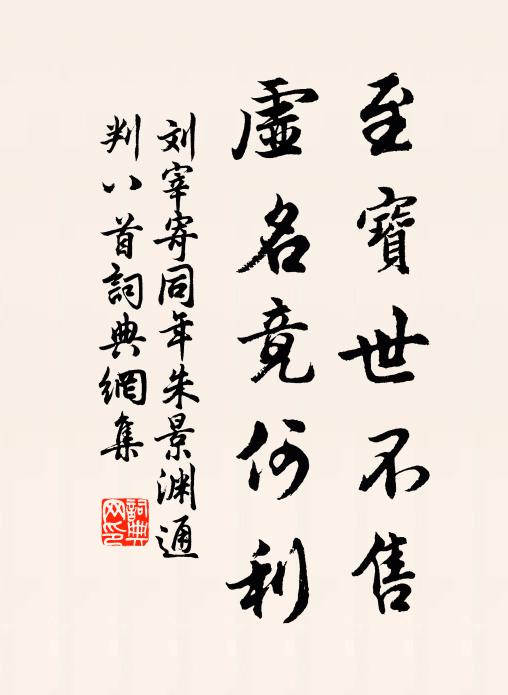 至寶世不售
虛名竟何利
刘宰寄同年朱景渊通
判八首詞典網集
詞典网印